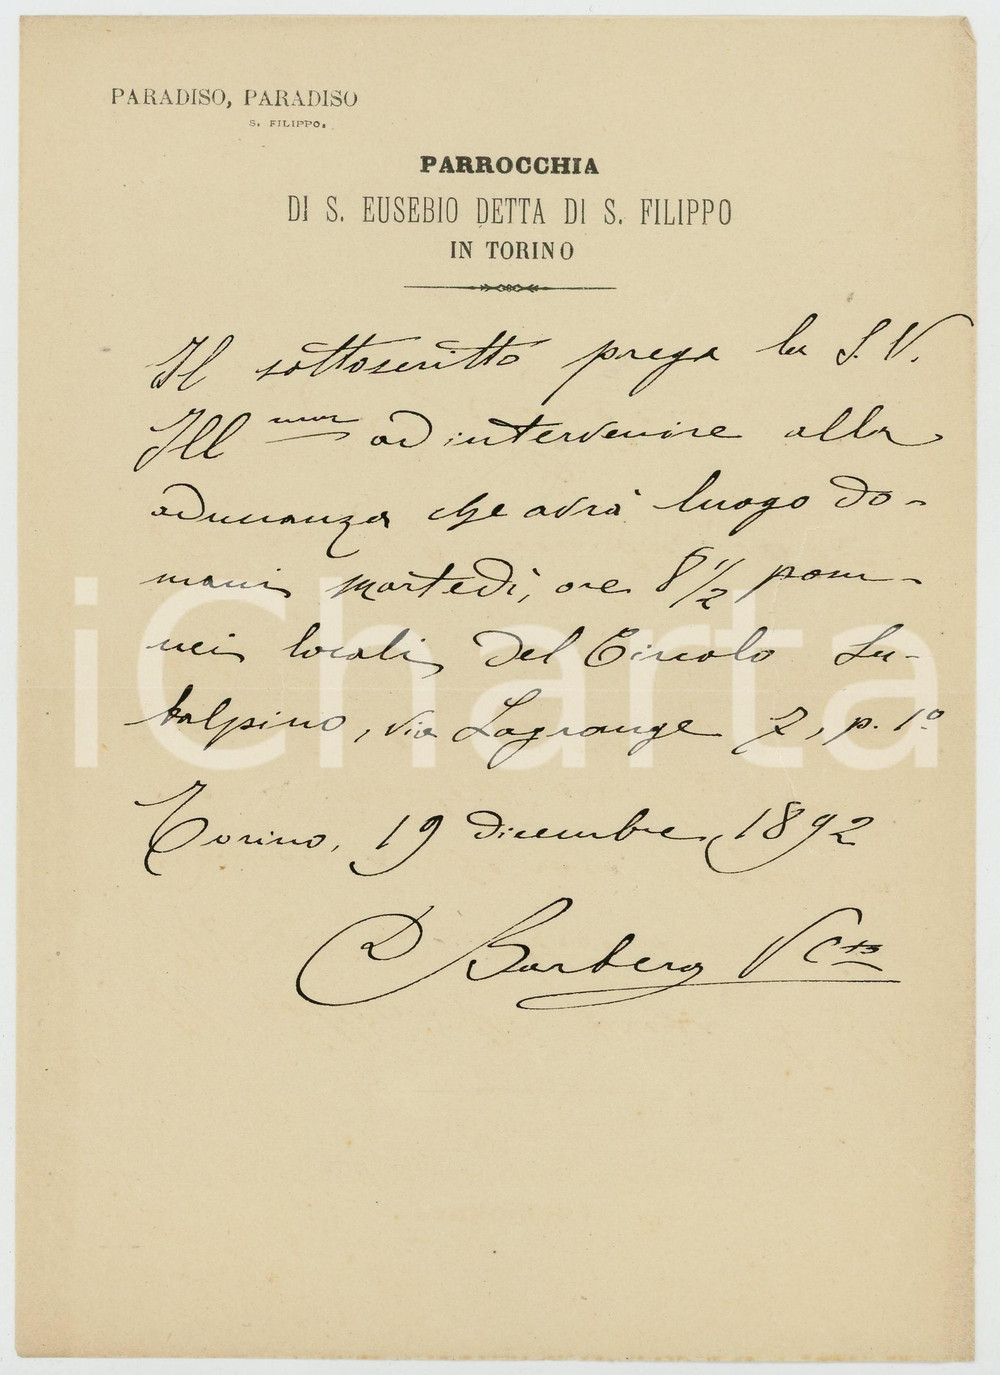 PARADISO, PARADISO
S. FILIPPO.
PARROCCHIA
DI S. EUSEBIO DETTA DI S. FILIPPO
IN TORINO
Il sottoscritto prega la S. V.
Ill ma ad intervenire alla
adunanza che avrà luogo do-
mani martedì, ore 8 1/2 pom-
nei locali del Circolo Su-
balpino, via Lagrange 7, p. 1º
Torino, 19 dicembre 1892
D Barbero
iCharta